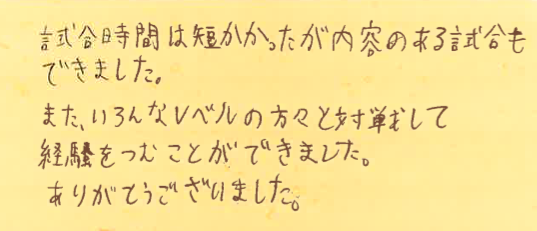 試合時間は短かかったが内容のある試合も
できました。
また、いろんなレベルの方々と対戦して
経験をつむことができました。
ありがとうございました。